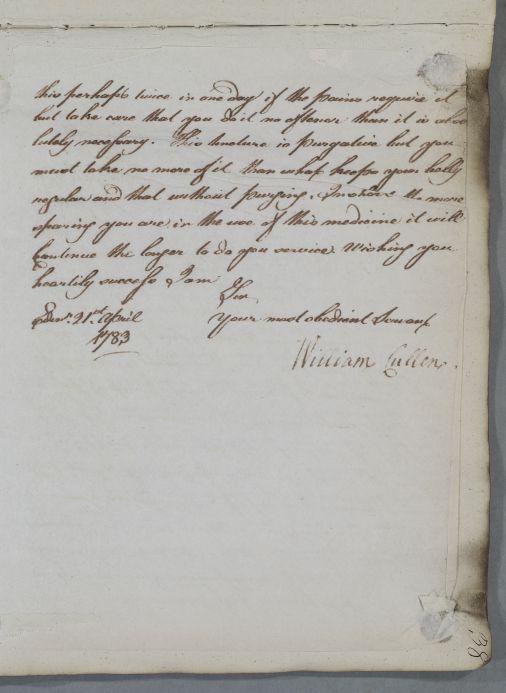 this perhaps twice in one day if the pains require it
but take care that you do it no oftener than it is abso
lutely necessary. This tincture is purgative but you
must take no more of it than what keeps your belly
regular and that without purging. In short the more
sparing you are in the use of this medicine it will
continue the longer to do you service. Wishing you
heartily success I am
Sir
Edinr. 21st. April
Your most obedient Servant
1783
William Cullen.
38